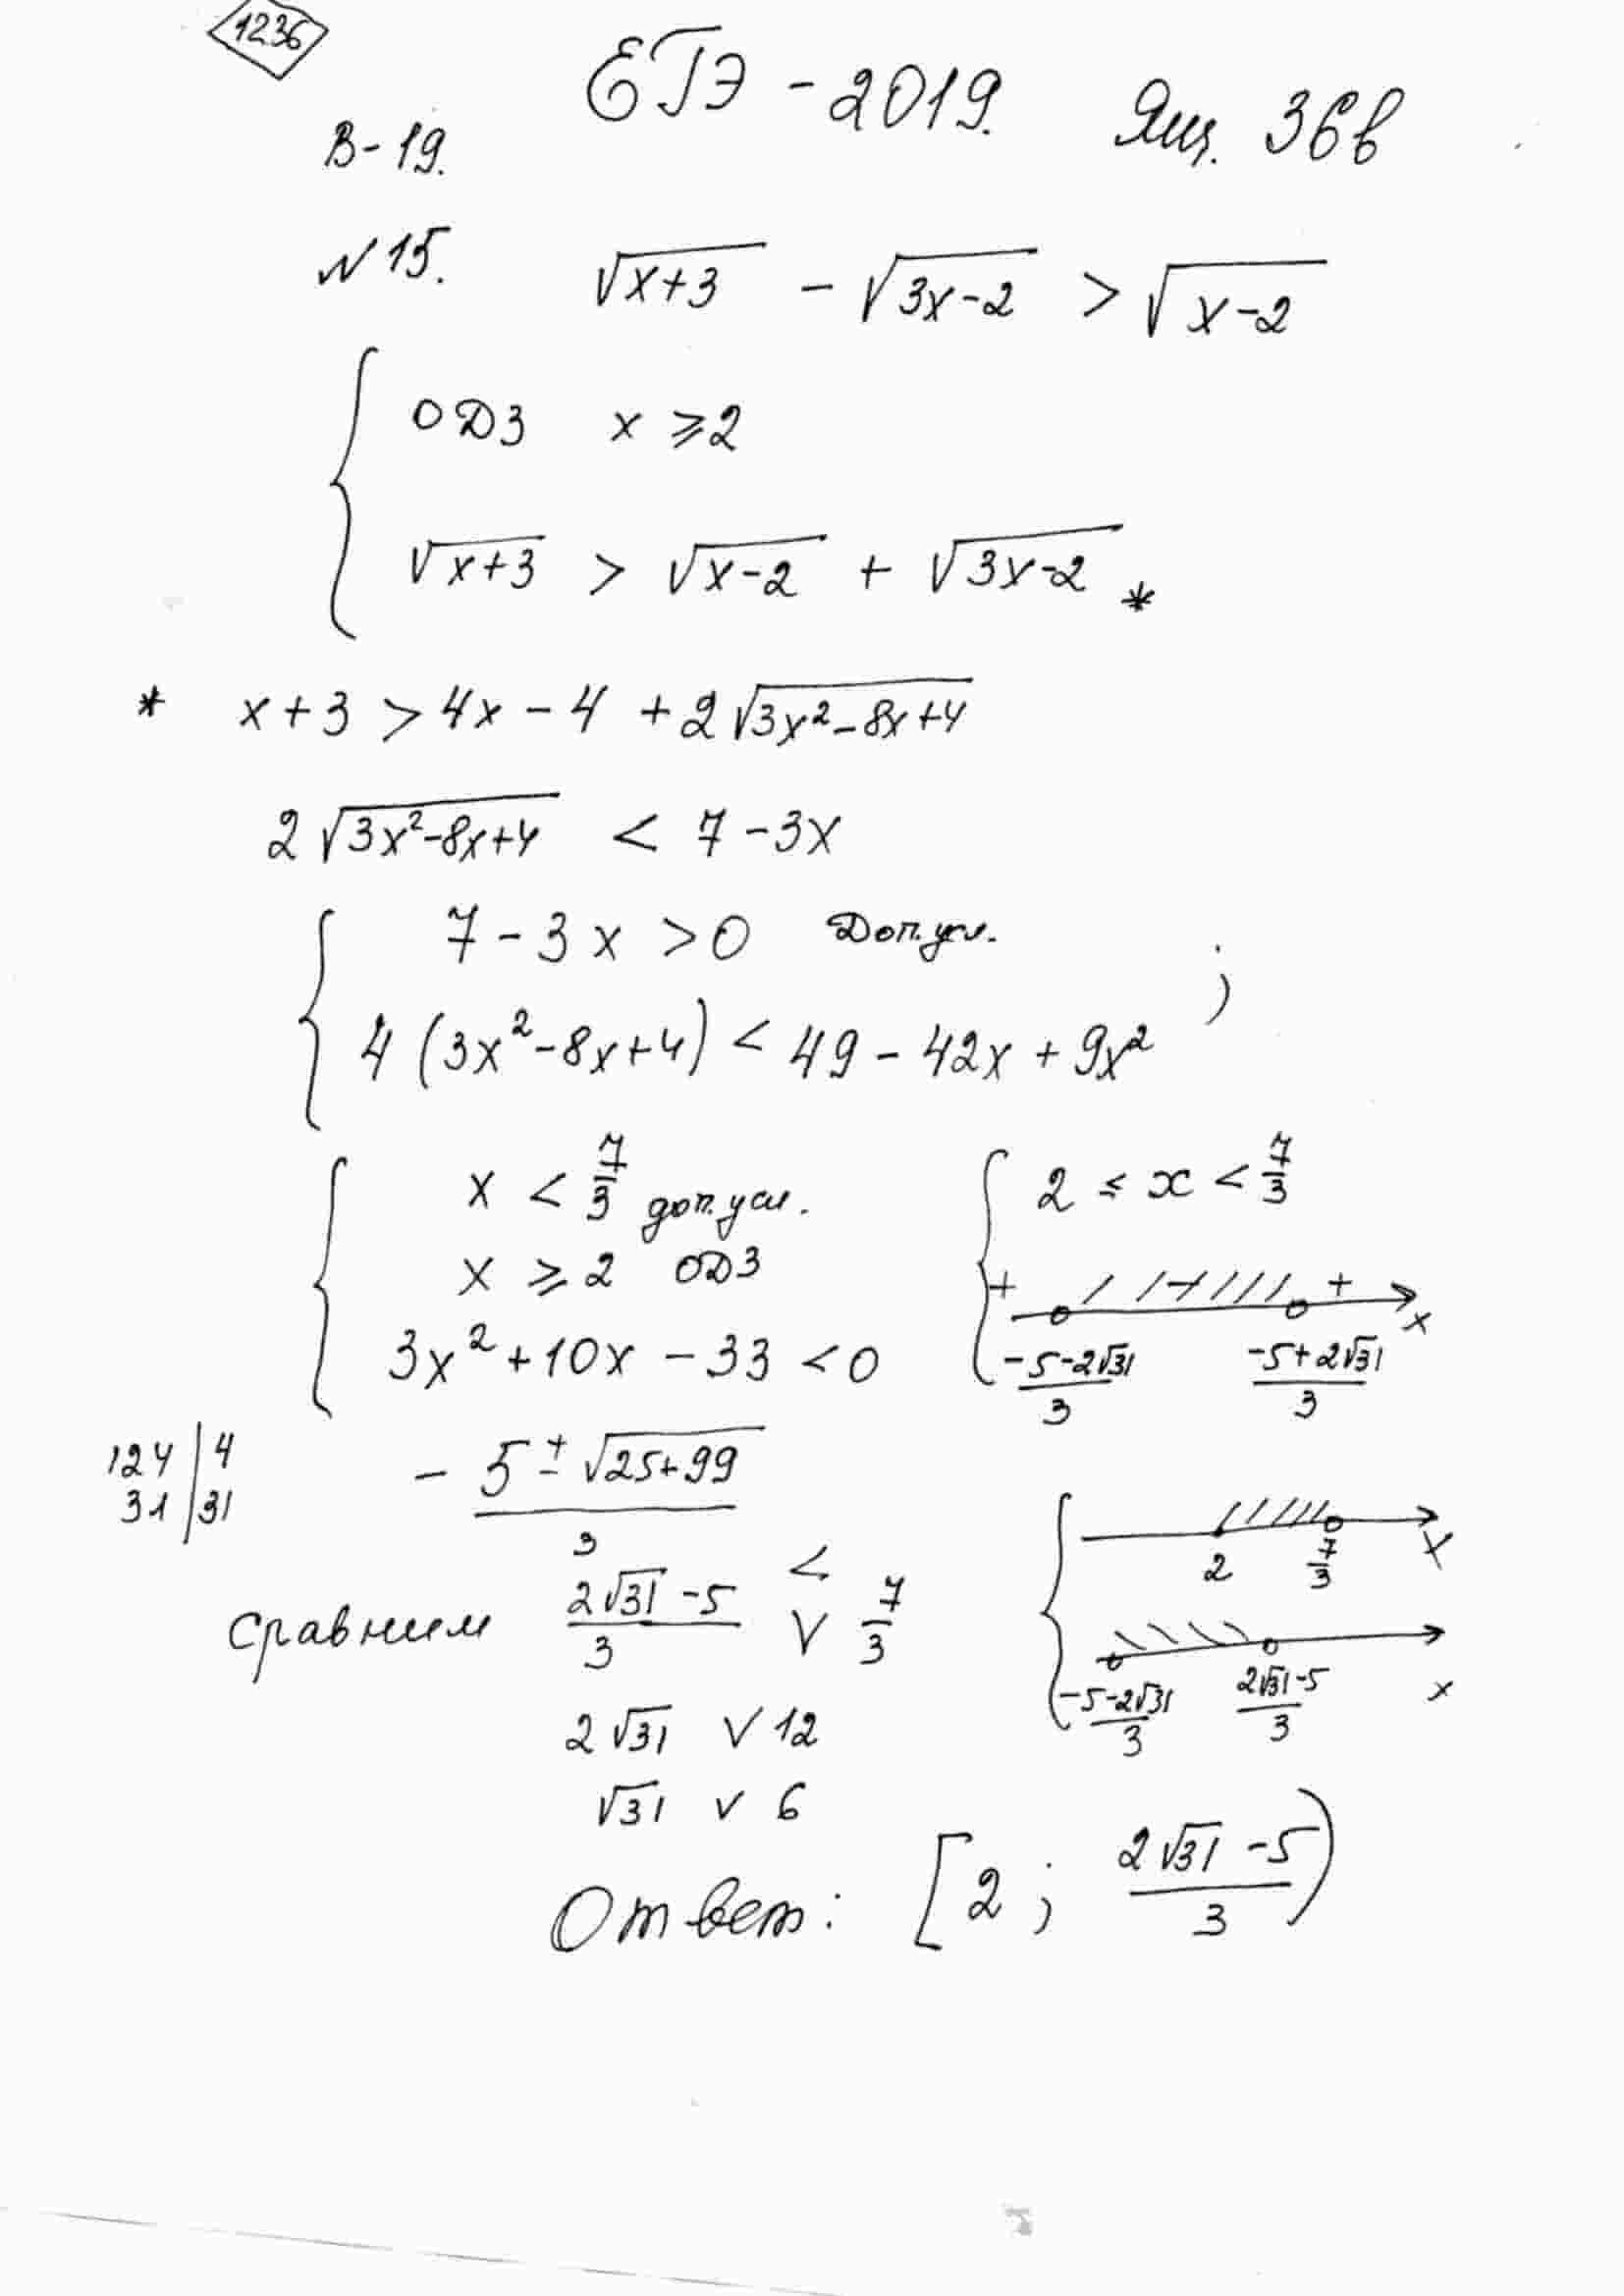 1236
ЕГЭ - 2019. Ящ. 36в
В-19.
N 15. √(x+3) - √(3x-2) > √(x-2)
ОДЗ x ⩾ 2
√(x+3) > √(x-2) + √(3x-2) *
* x+3 > 4x - 4 + 2√(3x²-8x+4)
2√(3x²-8x+4) < 7 - 3x
7 - 3x > 0 Доп. усл.
4(3x²-8x+4) < 49 - 42x + 9x² ;
x < 7/3 доп. усл.
x ⩾ 2 ОДЗ
3x² + 10x - 33 < 0
2 ⩽ x < 7/3
+ - + x
(-5-2√31)/3 (-5+2√31)/3
124 | 4
31 | 31
(-5 ± √(25+99))/3
2 7/3 x
<
Сравним (2√31 - 5)/3 ∨ 7/3
(-5-2√31)/3 (2√31-5)/3 x
2√31 ∨ 12
√31 ∨ 6
Ответ: [2 ; (2√31 - 5)/3)